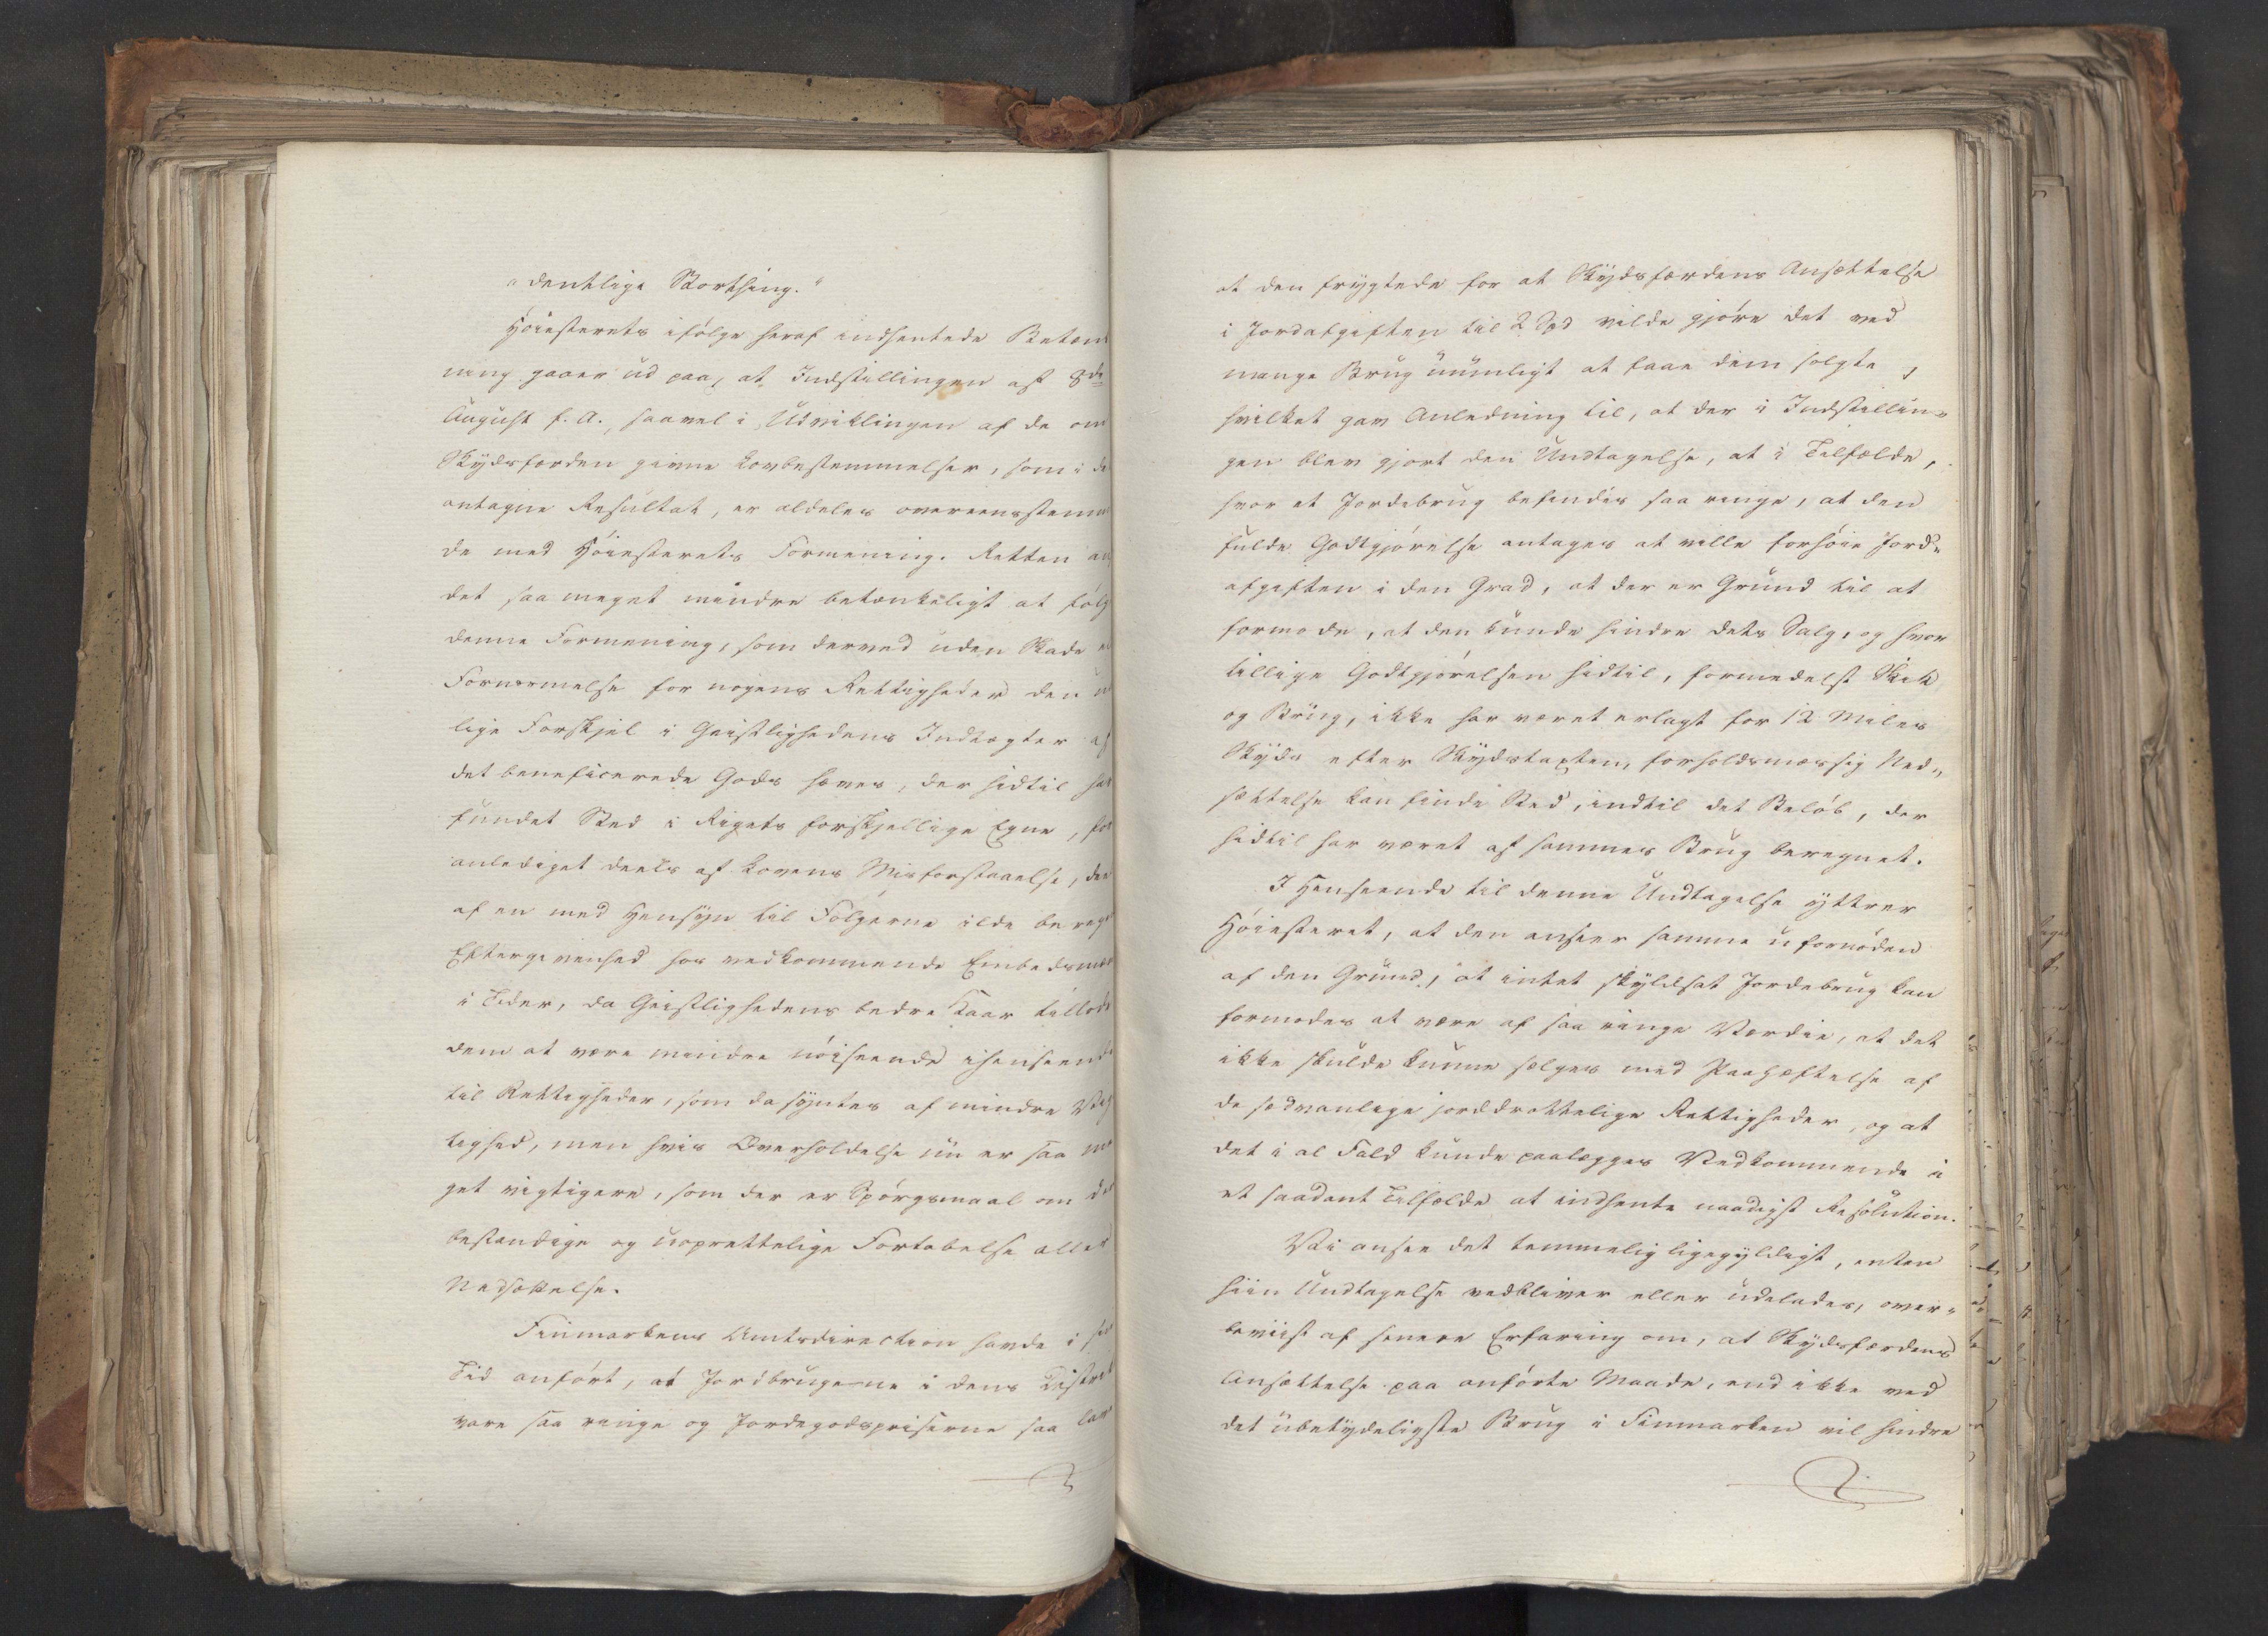 "dentlige Storthing."
Høiesterets ifølge heraf indhentede Betænk
ning gaaer ud paa, at Indstillingen af 8de
August f. A., saavel i Udviklingen af de om
Skydsfærden givne Lovbestemmelser, som i de
antagne Resultat, er aldeles overeensstemme
de med Høiesterets Formening. Retten an
det saa meget mindre betænkeligt at følg
denne Formening, som derved uden Skade el
Fornærmelse for nogens Rettigheder den u
lige Forskjel i Geistlighedens Indtægter af
det beneficerede Gods hæves, der hidtil har
fundet Sted i Rigets forskjellige Egne, for
anlediget deels af Lovens Misforstaaelse, dee
af en med Hensyn til Følgerne ilde beregn
Eftergivenhed hos vedkommende Embedsmæn
i Tider, da Geistlighedens bedre Kaar tillode
dem at være mindre nøiseende ihenseende
til Rettigheder, som da syntes af mindre Vig
tighed, men hvis Overholdelse nu er saa me
get vigtigere, som der er Spørgsmaal om det
bestandige og uoprettelige Fortabelse eller
Nedsættelse.
Finmarkens Amtsdirection havde i sin
Tid anført, at Jordbrugene i dens District
vare saa ringe og Jordegodspriserne saa lave
at den frygtede for at Skydsfærdens Ansættelse
i Jordafgiften til 2 Spd vilde gjøre det ved
mange Brug umuligt at faae dem solgte,
hvilket gav Anledning til, at der i Indstillin=
gen blev gjort den Undtagelse, at i Tilfælde,
hvor et Jordebrug befindes saa ringe, at den
fulde Godtgjørelse antages at ville forhøie Jord=
afgiften i den Grad, at der er Grund til at
formode, at den kunde hindre dets Salg, og hvor
tillige Godtgjørelsen hidtil, formedelst Skik
og Brug, ikke har været erlagt for 12 Miles
Skyds efter Skydstaxten, forholdsmæssig Ned=
sættelse kan finde Sted, indtil det Beløb, der
hidtil har været af sammes Brug beregnet.
I Henseende til denne Undtagelse yttrer
Høiesteret, at den anseer samme ufornøden
af den Grund, at intet skyldsat Jordebrug kan
formodes at være af saa ringe Værdie, at det
ikke skulde kunne sælges med Paahæftelse af
de sædvanlige jorddrottelige Rettigheder, og at
det i al Fald kunde paalægges Vedkommende i
et saadant Tilfælde at indhente naadigst Resolution.
Vi ansee det temmelig ligegyldigt, enten
hiin Undtagelse vedbliver eller udelades, over=
beviist af senere Erfaring om, at Skydsfærdens
Ansættelse paa anførte Maade, end ikke ved
det ubetydeligste Brug i Finmarken vil hindre